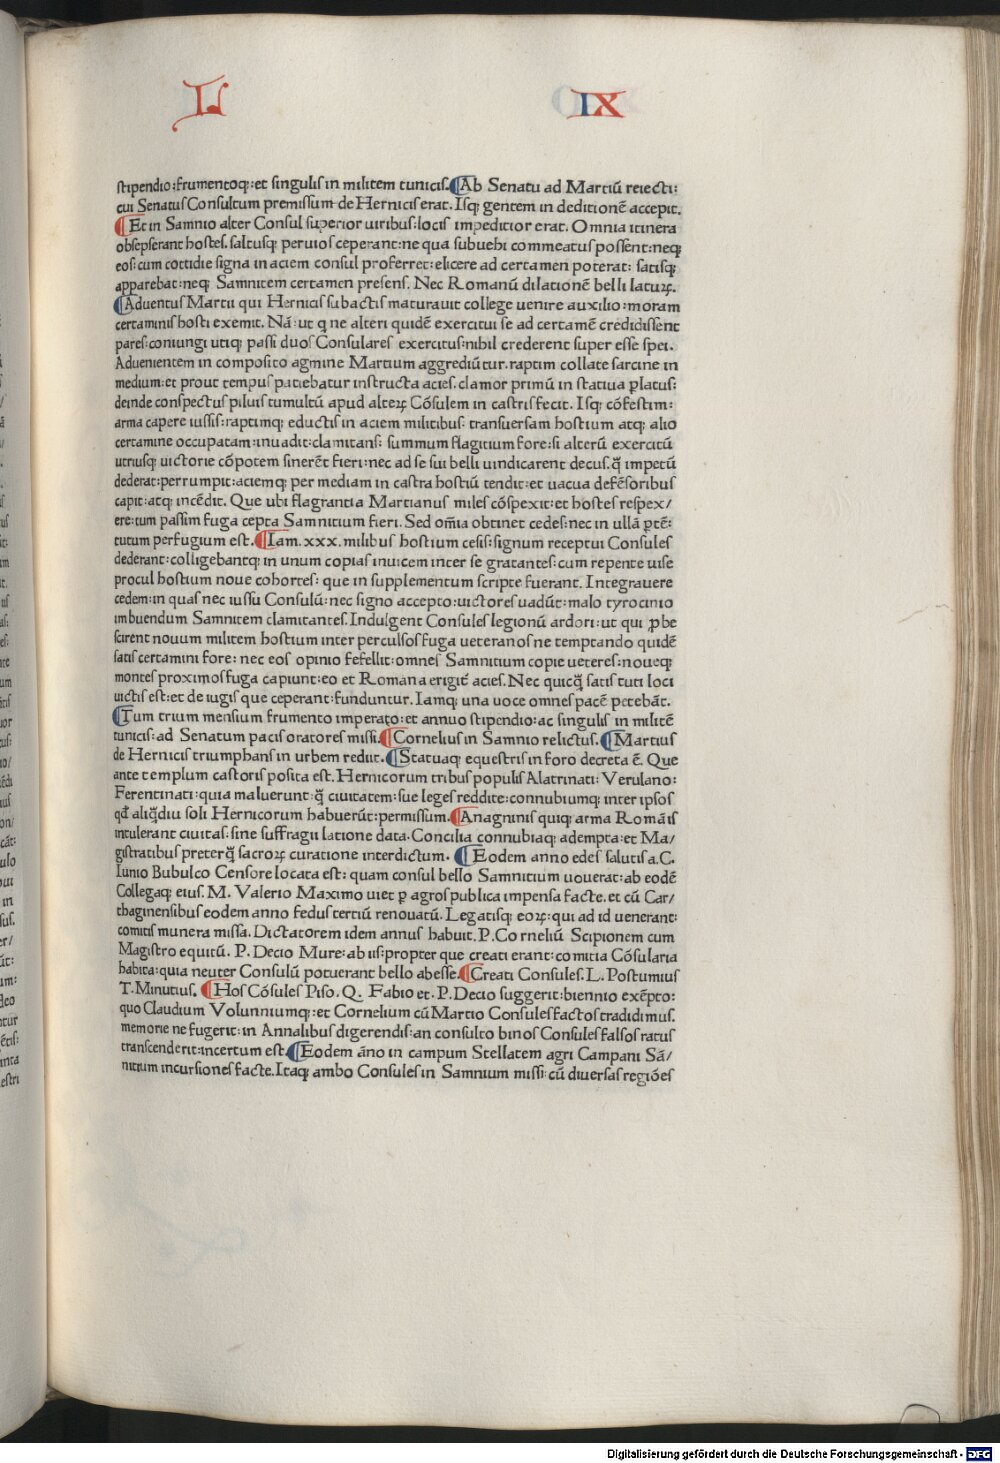 L IX
stipendio:frumentoq;:et singulis in militem tunicis. Ab Senatu ad Martiū reiecti:
cui Senatus Consultum premissum de Hernicis erat. Isq; gentem in deditionē accepit.
Et in Samnio alter Consul superior uiribus:locis impeditior erat. Omnia itinera
obsepserant hostes. saltusq; peruios ceperant:ne qua subuehi commeatus possent:neq;
eos:cum cottidie signa in aciem consul proferret:elicere ad certamen poterat: satisq;
apparebat:neq; Samnitem certamen presens. Nec Romanū dilationē belli laturꝝ.
Aduentus Martii qui Hernicis subactis maturauit college uenire auxilio:moram
certaminis hosti exemit. Nā:ut q ne alteri quidē exercitui se ad certamē credidissent
pares:coniungi utiq; passi duos Consulares exercitus:nihil crederent super esse spei.
Aduenientem in composito agmine Martium aggrediūtur.raptim collate sarcine in
medium:et prout tempus patiebatur instructa acies.clamor primū in statiua ꝑlatus:
deinde conspectus pulúis tumultū apud alteꝝ Cōsulem in castris fecit. Isq; cōfestim:
arma capere iussis:raptimq; eductis in aciem militibus: transuersam hostium atq; alio
certamine occupatam:inuadit:clamitans: summum flagitium fore:si alterū exercitū
utriusq; uictorie cōpotem sinerēt fieri:nec ad se sui belli uindicarent decus.q̄ impetū
dederat:perrumpit:aciemq; per mediam in castra hostiū tendit:et uacua defēsoribus
capit:atq; incēdit. Que ubi flagrantia Martianus miles cōspexit:et hostes respex/
ere:tum passim fuga cepta Samnitium fieri. Sed om̄ia obtinet cedes:nec in ullā ꝑtē:
tutum perfugium est. Iam.xxx.milibus hostium cesis:signum receptui Consules
dederant:colligebantq; in unum copias inuicem inter se gratantes:cum repente uise
procul hostium noue cohortes: que in supplementum scripte fuerant. Integrauere
cedem:in quas nec iussu Consulū:nec signo accepto:uictores uadūt:malo tyrocinio
imbuendum Samnitem clamitantes. Indulgent Consules legionū ardori:ut qui ꝓbe
scirent nouum militem hostium inter perculsos fuga ueteranos ne temptando quidē
satis certamini fore: nec eos opinio fefellit:omnes Samnitium copie ueteres:noueq;
montes proximos fuga capiunt:eo et Romana erigit̄ acies. Nec quicq̄ satis tuti loci
uictis est:et de iugis que ceperant:funduntur. Iamq; una uoce omnes pacē petebāt.
Tum trium mensium frumento imperato:et annuo stipendio:ac singulis in militē
tunicis:ad Senatum pacis oratores missi. Cornelius in Samnio relictus. Martius
de Hernicis triumphans in urbem rediit. Statuaq; equestris in foro decreta ē. Que
ante templum castoris posita est. Hernicorum tribus populis Alatrinati: Verulano:
Ferentinati:quia maluerunt:q̄ ciuitatem:sue leges reddite:connubiumq; inter ipsos
qd̄ aliq̄diu soli Hernicorum habuerūt:permissum. Anagninis quiq; arma Romāis
intulerant ciuitas:sine suffragii latione data. Concilia connubiaq; adempta:et Ma/
gistratibus preterq̄ sacroꝝ curatione interdictum. Eodem anno edes salutis a.C.
Iunio Bubulco Censore locata est: quam consul bello Samnitium uouerat:ab eodē
Collegaq; eius. M. Valerio Maximo uiet ꝑ agros publica impensa facte.et cū Car/
thaginensibus eodem anno fedus tertiū renouatū. Legatisq; eoꝝ: qui ad id uenerant:
comitis munera missa. Dictatorem idem annus habuit. P. Corneliū Scipionem cum
Magistro equitū. P. Decio Mure:ab iis:propter que creati erant:comitia Cōsularia
habita:quia neuter Consulū potuerant bello abesse. Creati Consules. L. Postumius
T. Minutius. Hos Cōsules Piso. Q. Fabio et. P. Decio suggerit:biennio exēpto:
quo Claudium Volunniumq;:et Cornelium cū Martio Consules factos tradidimus.
memorie ne fugerit:in Annalibus digerendis:an consulto binos Consules falsos ratus
transcenderit:incertum est. Eodem āno in campum Stellatem agri Campani Sā/
nitium incursiones facte. Itaq; ambo Consules in Samnium missi:cū diuersas regiōes
Digitalisierung gefördert durch die Deutsche Forschungsgemeinschaft - DFG